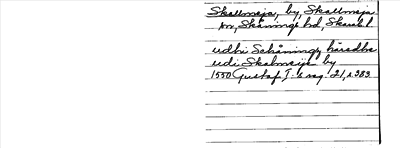 Skallmeja, by, Skallmeja
sn, Skånings hd, Skarab l
udhi Schåningz häradhe
udi Skalmeije by
1550 Gustaf I:s reg. 21, s 383